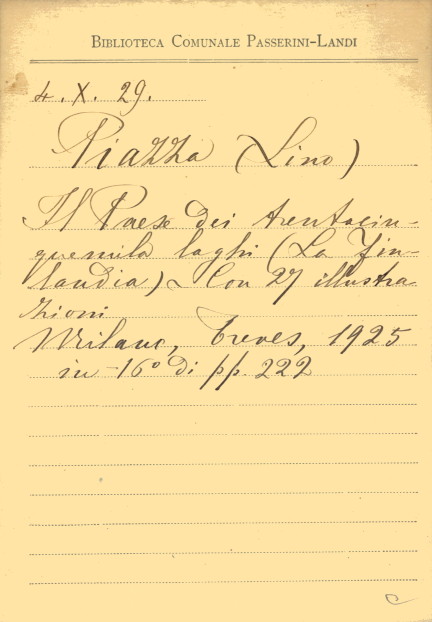 BIBLIOTECA COMUNALE PASSERINI-LANDI
4. X. 29.
Piazza (Lino)
Il Paese dei trentacin-
quemila laghi (La Fin-
landia) - Con 27 illustra
zioni
Milano, Treves, 1925
in -16° di pp. 222